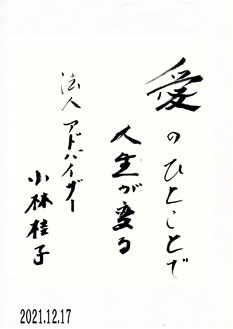 愛のひとことで
人生が変る
法人アドバイザー
小林桂子
2021.12.17